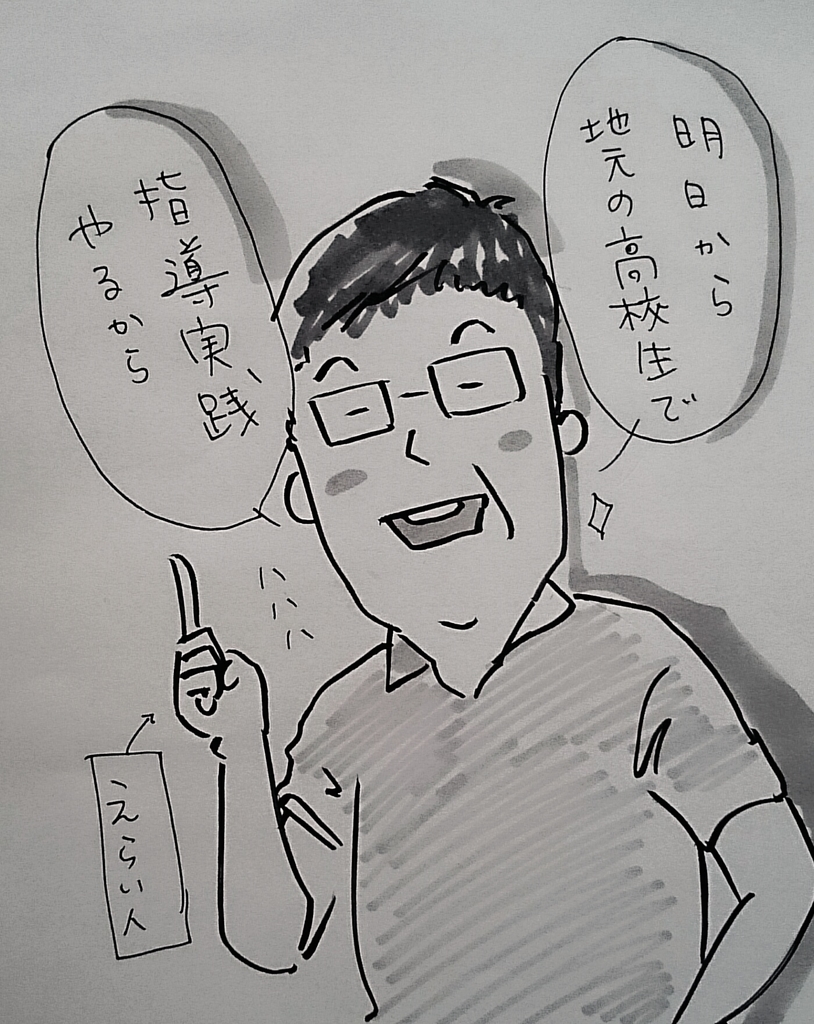 明日から
地元の高校生で
指導実践、
やるから
ハハハ
えらい人